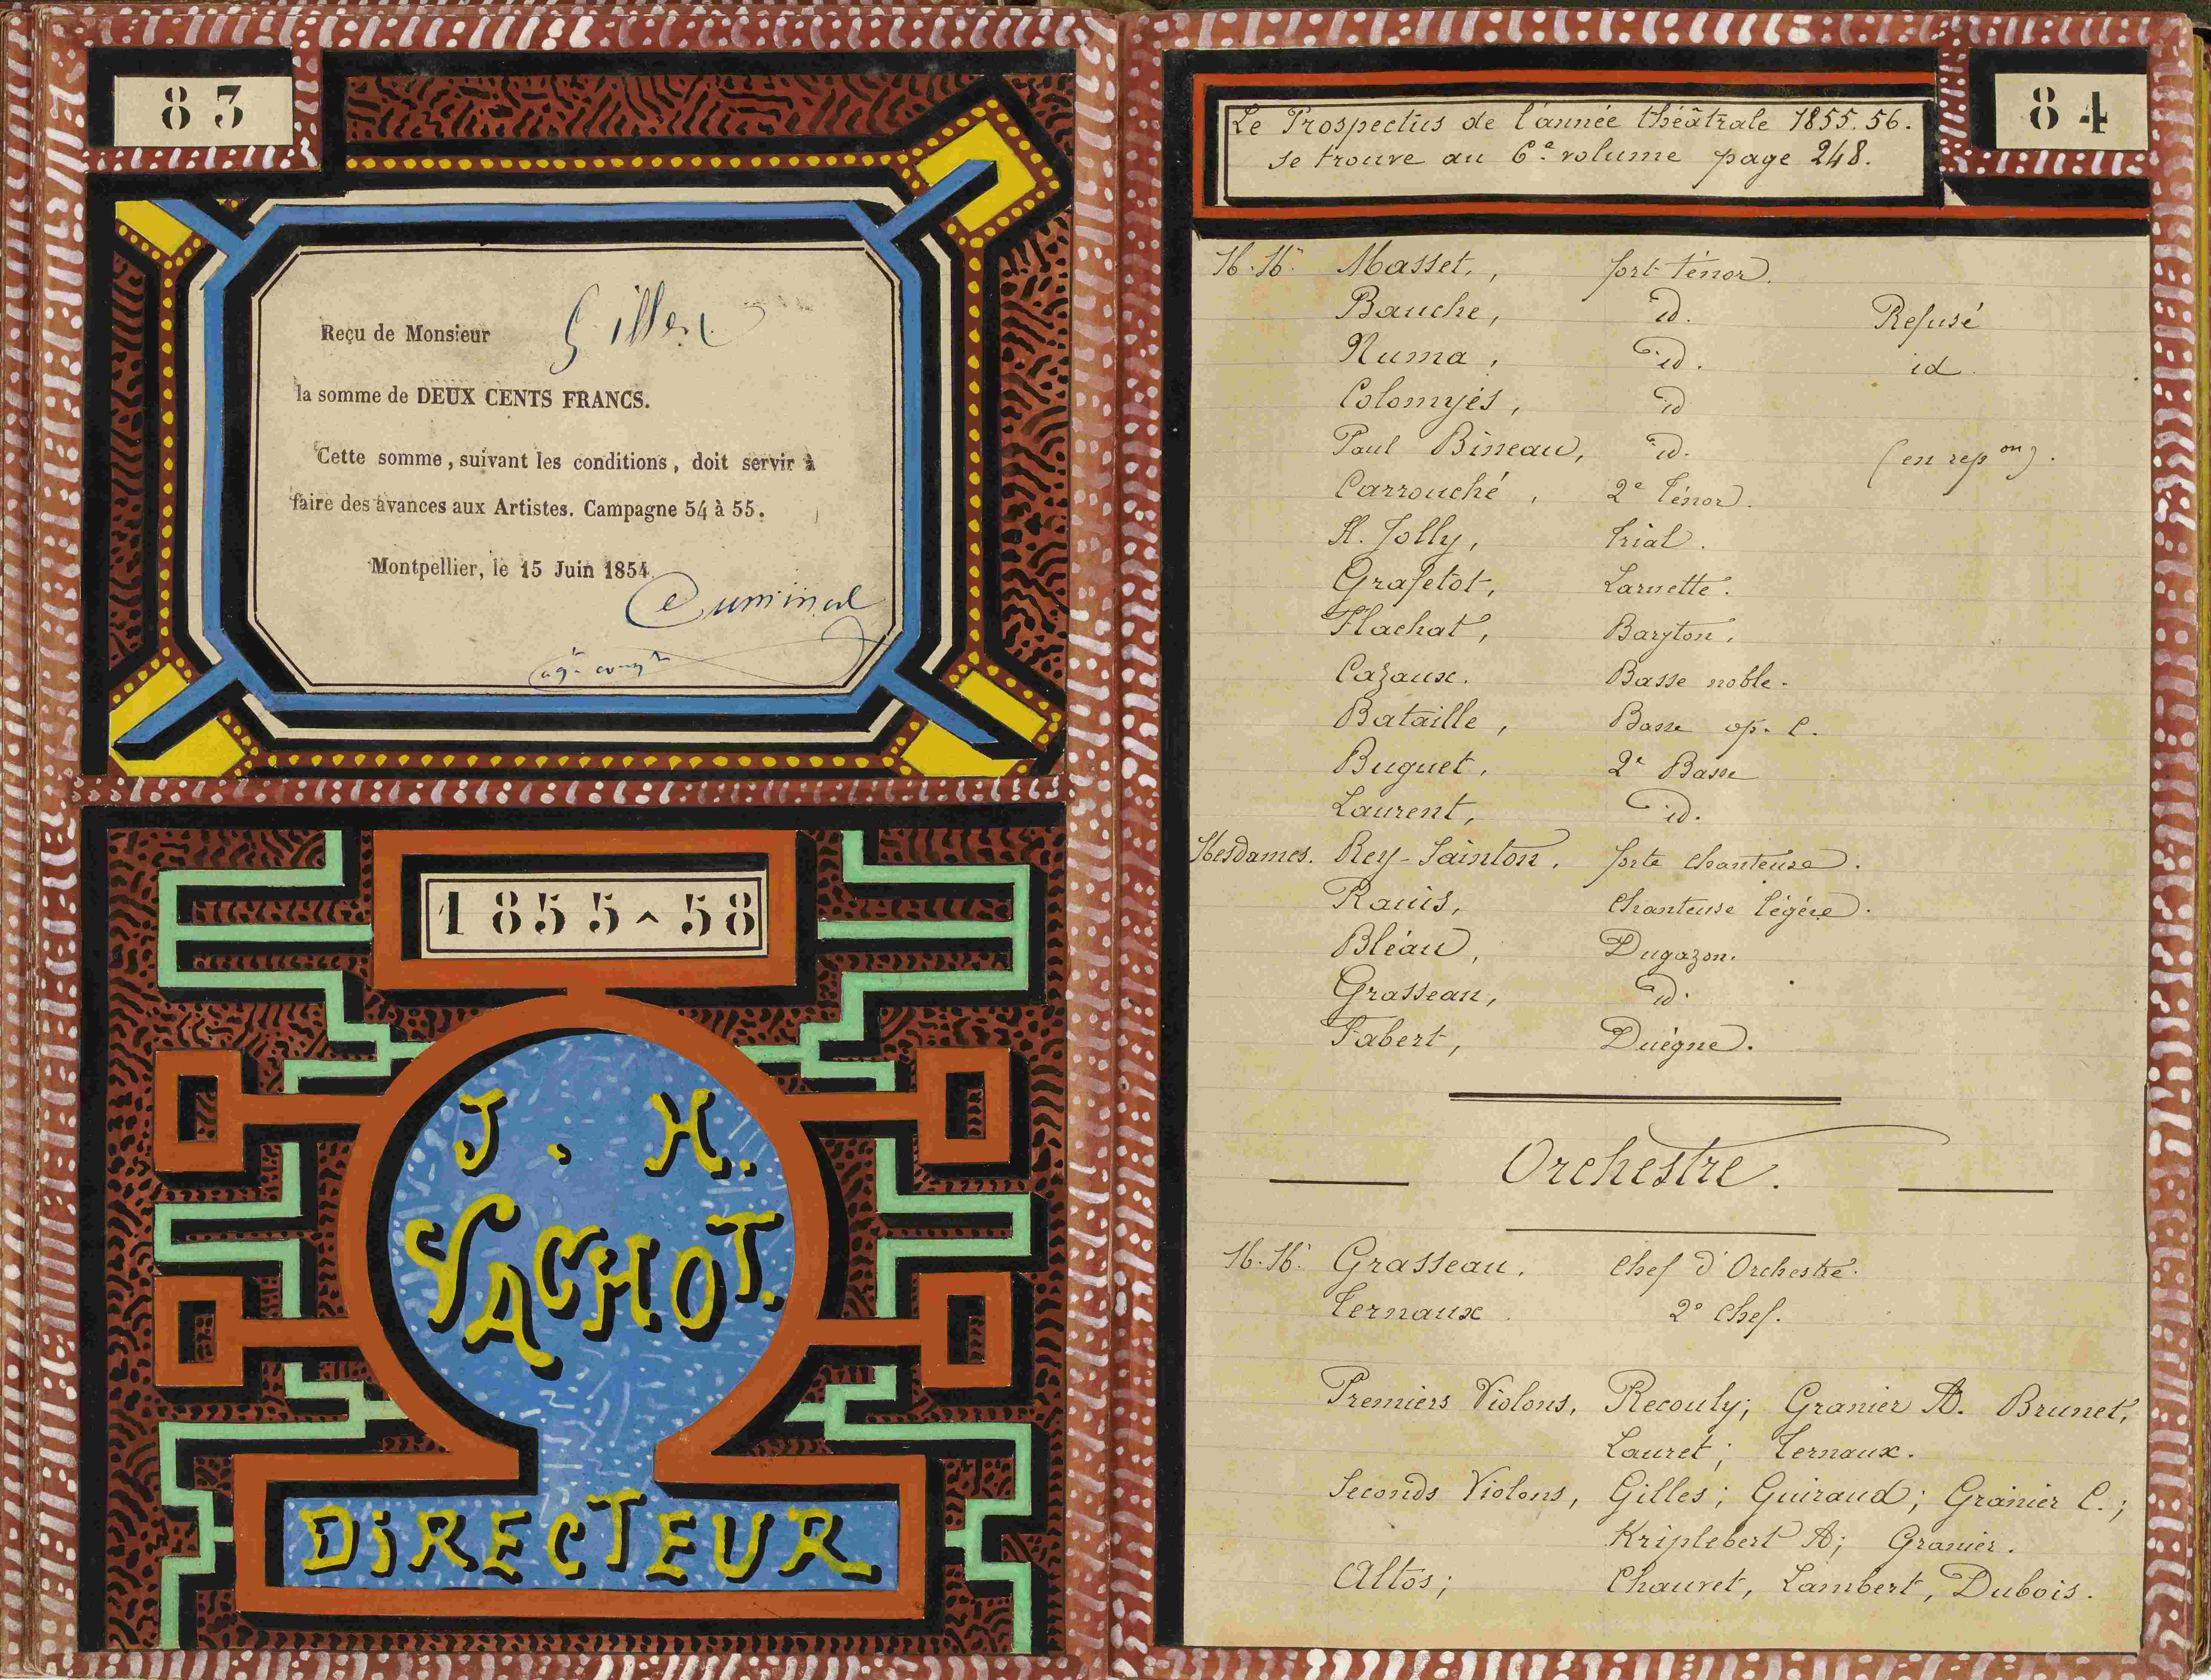 83
Reçu de Monsieur Gilles
la somme de DEUX CENTS FRANCS.
Cette somme, suivant les conditions, doit servir à
faire des avances aux Artistes. Campagne 54 à 55.
Montpellier, le 15 Juin 1854
1855-58
J. H.
VACHOT.
DiRECTEUR
84
Le Prospectus de l'année théâtrale 1855.56.
se trouve au 6e volume page 248.
M.M. Masset, fort ténor.
Bauche, id. Refusé
Numa, id. id.
Colomyés, id
Paul Bineau, id. (en repon).
Carrouché, 2e Ténor.
A. Jolly, Trial.
Grafetot, Laruette.
Flachat, Baryton.
Cazaux. Basse noble.
Bataille, Basse op. C.
Buguet. 2e Basse
Laurent, id.
Mesdames. Rey-Sainton. forte chanteuse.
Rauis, Chanteuse légére.
Bléau, Dugazon.
Grasseau, id.
Fabert, Duègne.
Orchestre.
M.M. Grasseau. Chef d'Orchestre.
Ternaux 2e Chef.
Premiers Violons, Recouly; Granier A. Brunet,
Lauret; Ternaux.
Seconds Violons, Gilles; Guiraud; Granier C.;
Kriplebert A; Granier.
Altos; Chauvet, Lambert, Dubois.